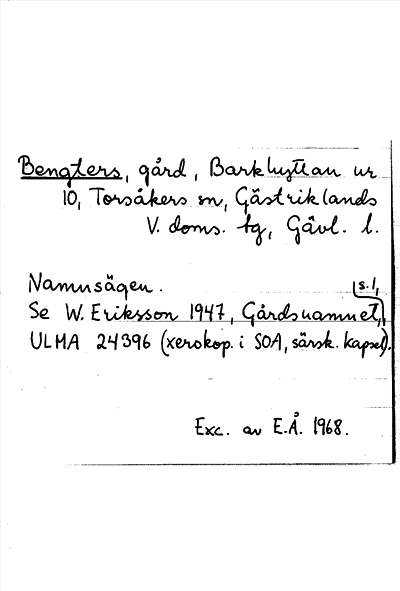 Bengters, gård, Barkhyttan nr
10, Torsåkers sn, Gästriklands
V. doms. tg, Gävl. l.
Namnsägen.
s. 1,
Se W. Eriksson 1947, Gårdsnamnet,
ULMA 24396 (xerokop. i SOA, särsk. kapsel).
Exc. av E.Å. 1968.